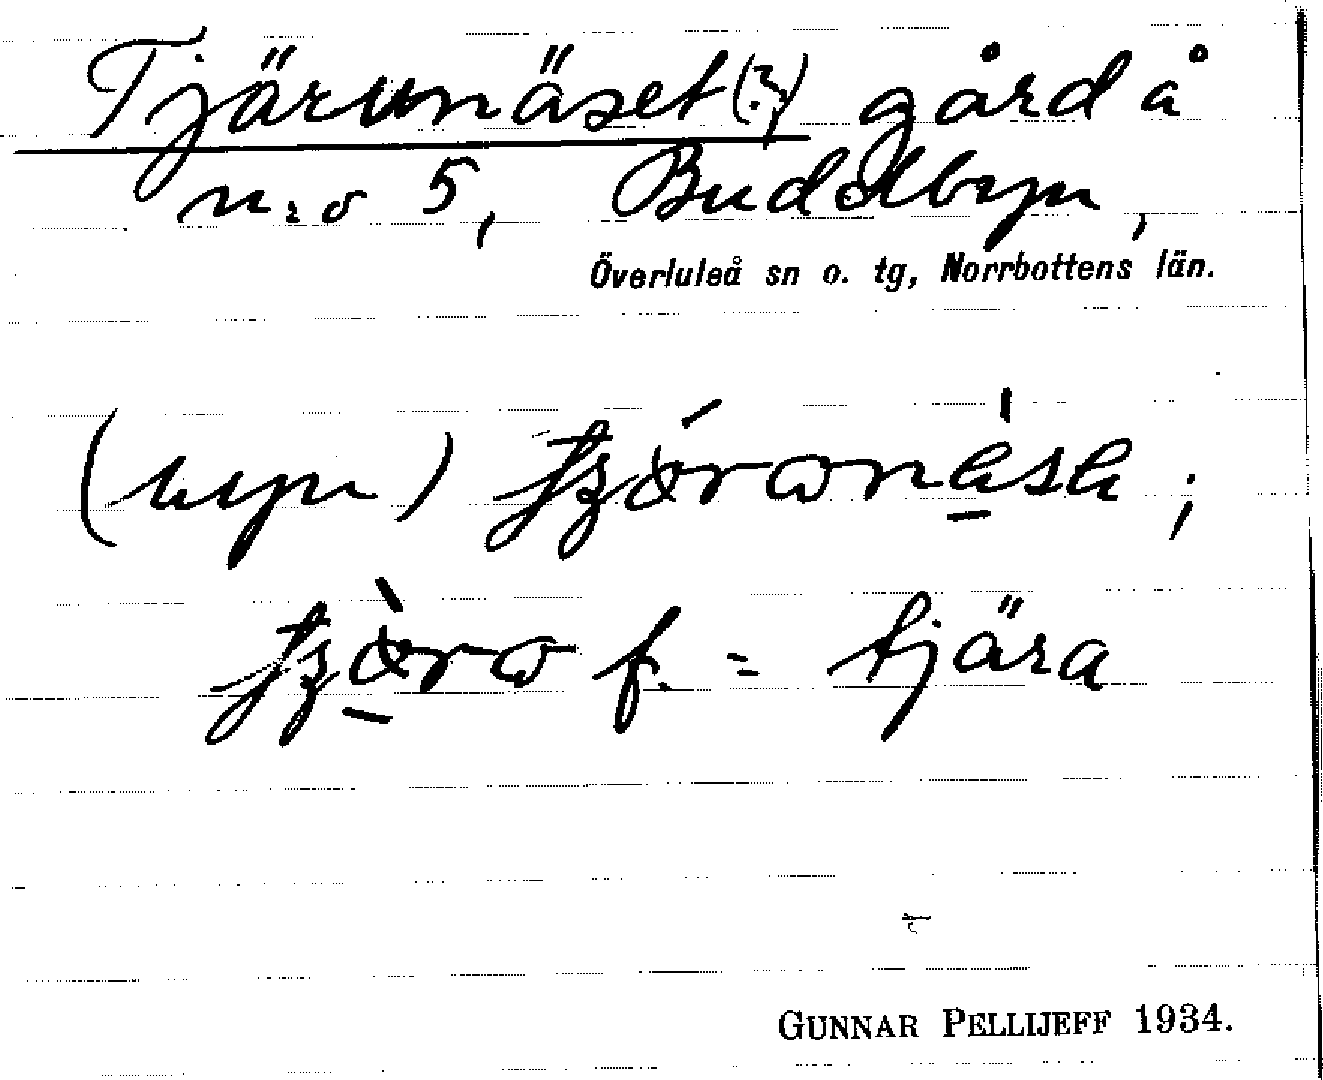 Tjärunäset(?) gård å
n:o 5, Buddbyn,
Överluleå sn o. tg, Norrbottens län.
f. = tjära
GUNNAR PELLIJEFF 1934.